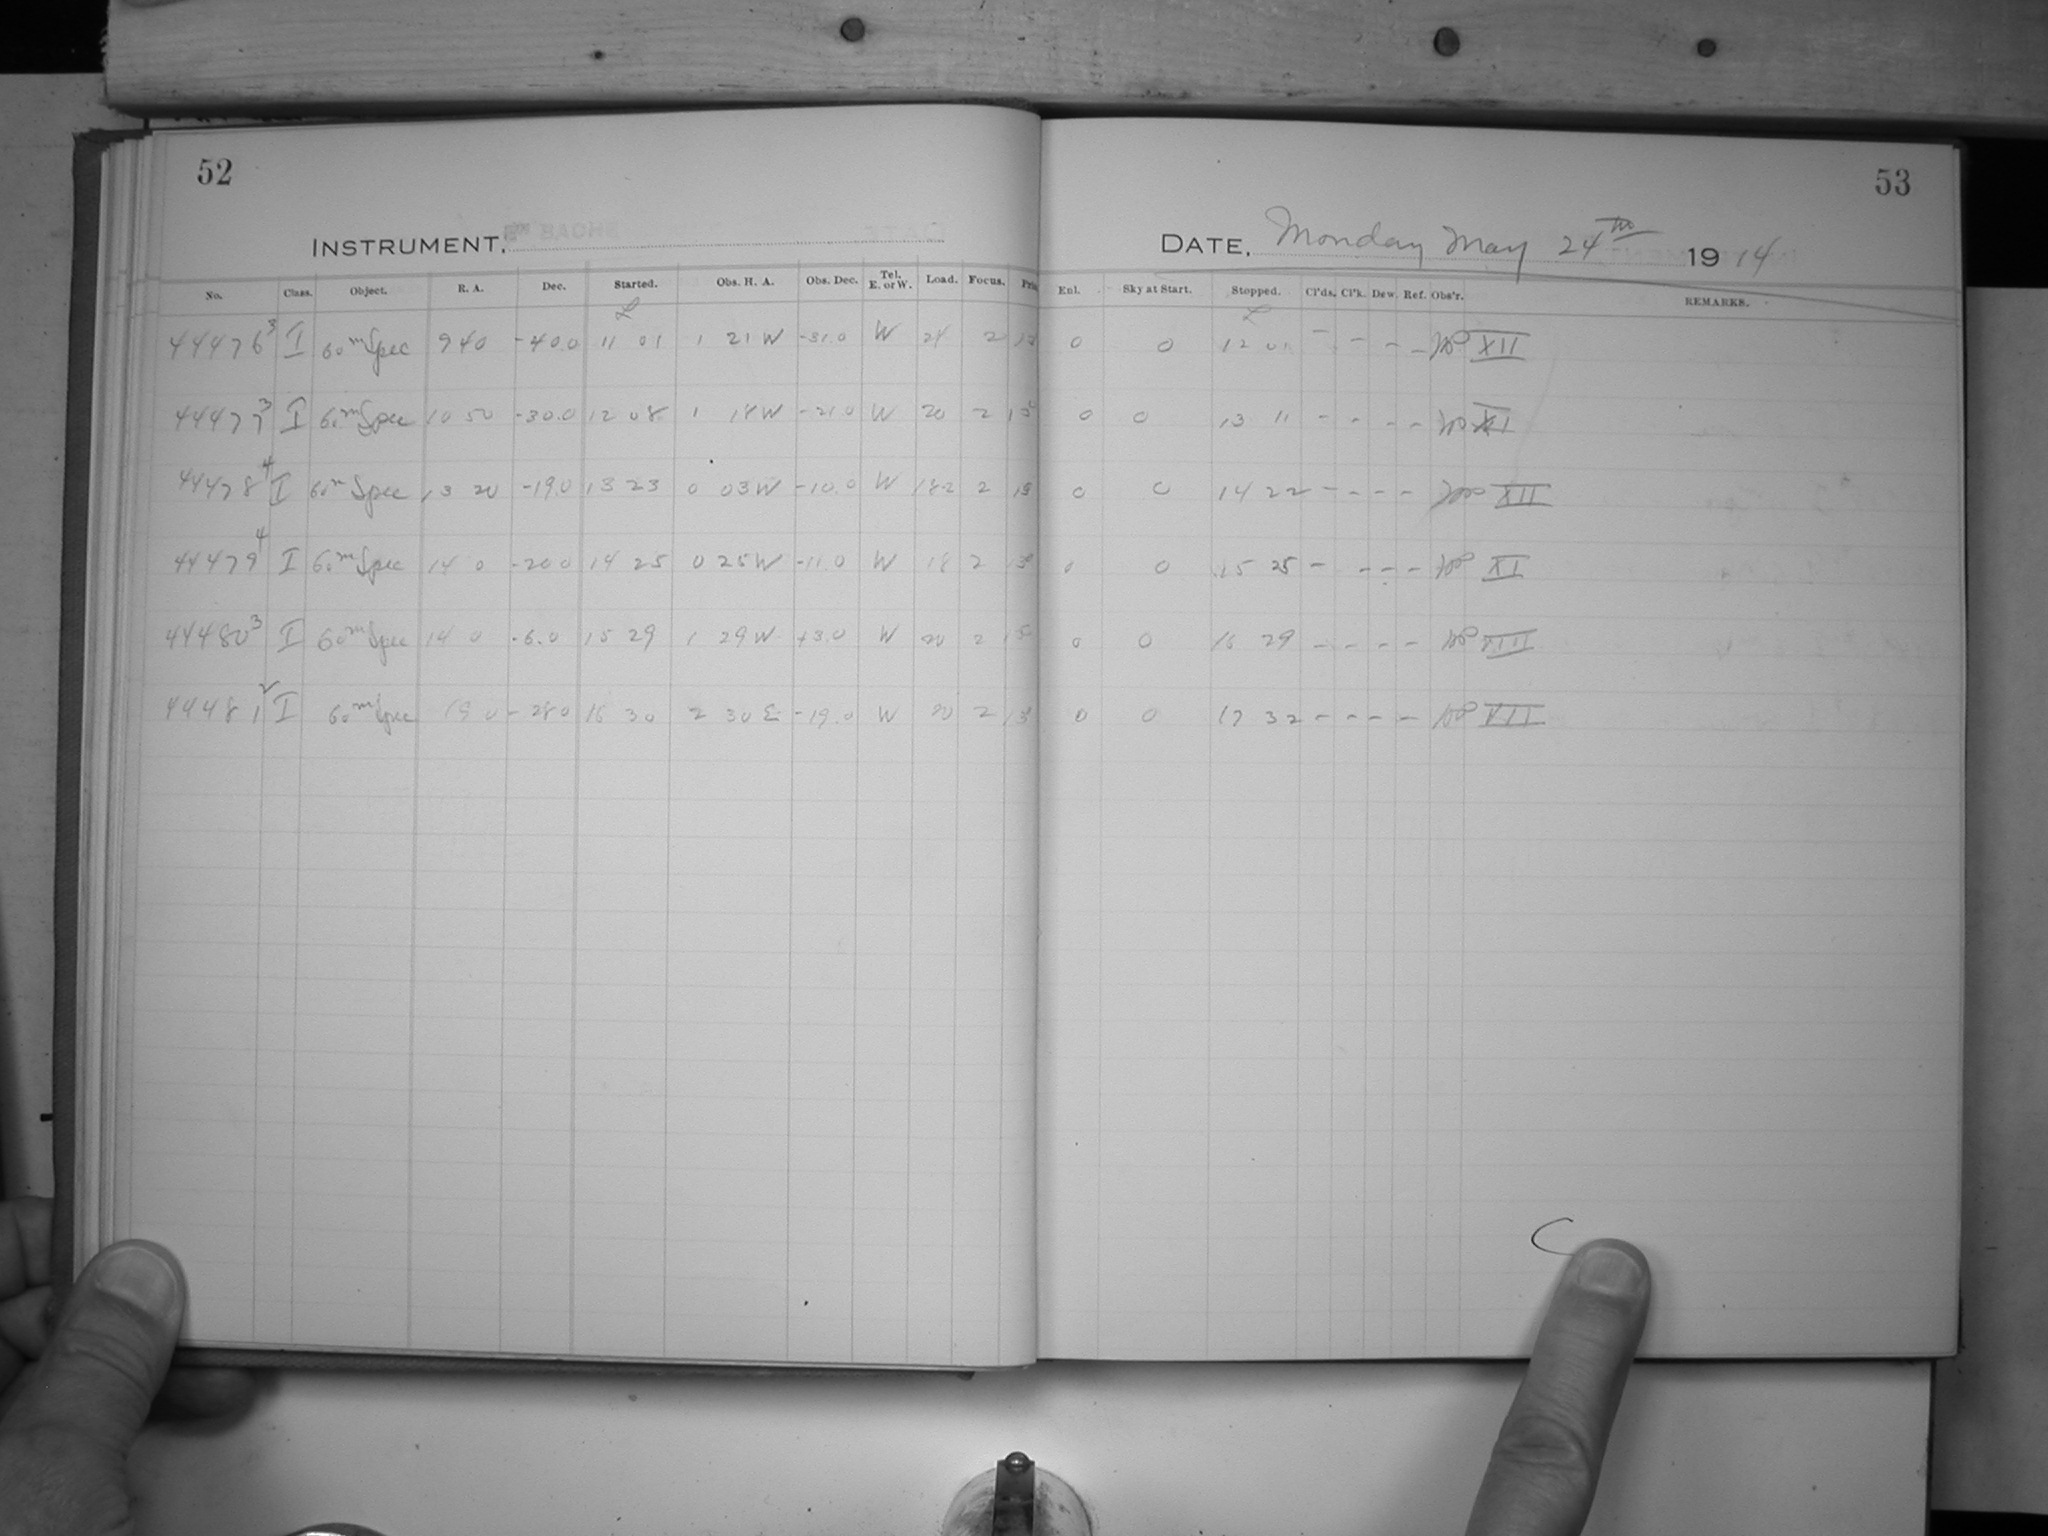 52
INSTRUMENT.
No. Class. Object. R. A. Dec. Started. Obs. H. A. Obs. Dec. Tel. E. or W. Load. Focus.
44476 3 I 60m Spec 9 40 -40.0 11 01 1 21 W -31.0 W 24 2
44477 3 I 60m Spec 10 50 -30.0 12 08 1 18 W -21.0 W 20 2
44478 4 I 60m Spec 13 20 -19.0 13 23 0 03 W -10.0 W 18.2 2
44479 4 I 60m Spec 14 0 -20.0 14 25 0 25 W -11.0 W 18 2
44480 3 I 60m Spec 14 0 -6.0 15 29 1 29 W +3.0 W 20 2
44481 2 I 60m Spec 19 0 -28.0 16 30 2 30 E -19.0 W 20 2
53
DATE, Monday May 24th 1914
Enl. Sky at Start. Stopped. Cl'ds. Cl'k. Dew. Ref. Obs'r. REMARKS.
0 0 12 01 - - - - XII
0 0 13 11 - - - - XI
0 0 14 22 - - - - XII
0 0 15 25 - - - - XI
0 0 16 29 - - - -
0 0 17 32 - - - -